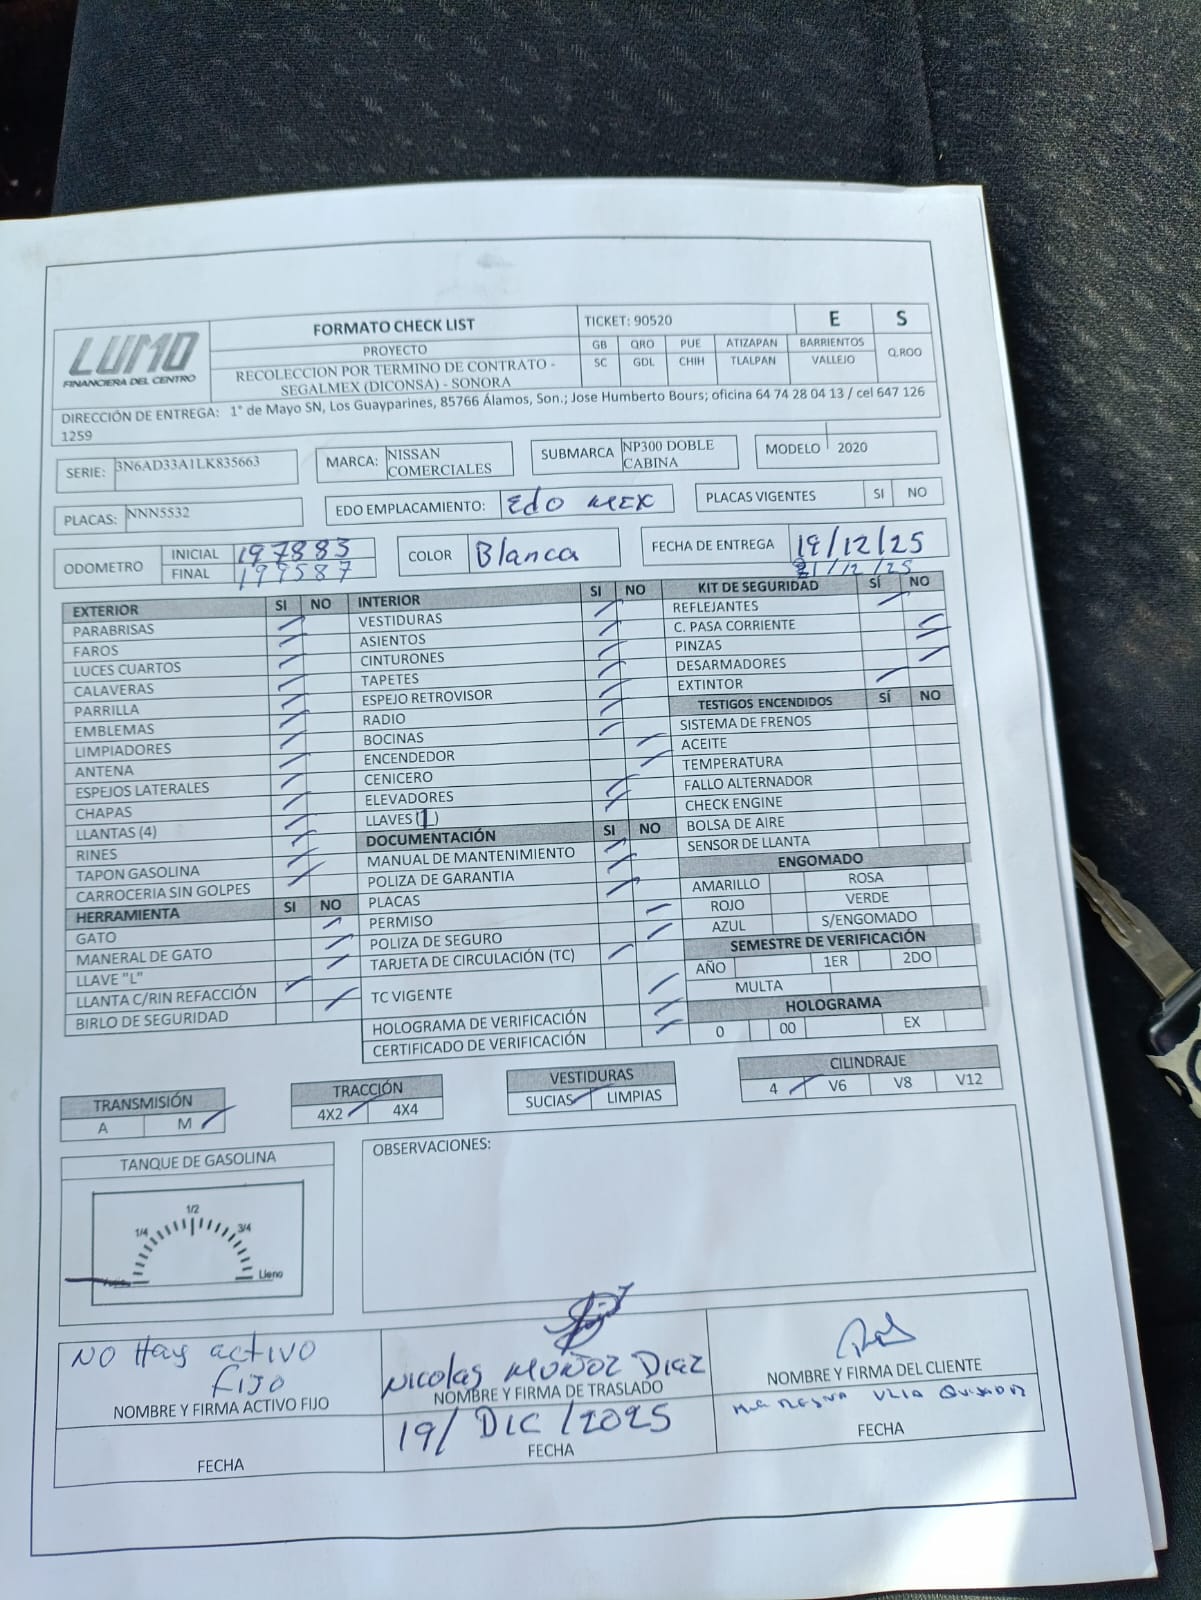 LUMO
FINANCIERA DEL CENTRO
FORMATO CHECK LIST
PROYECTO
RECOLECCION POR TERMINO DE CONTRATO -
SEGALMEX (DICONSA) - SONORA
TICKET: 90520 E S
GB QRO PUE ATIZAPAN BARRIENTOS Q.ROO
SC GDL CHIH TLALPAN VALLEJO
DIRECCIÓN DE ENTREGA: 1° de Mayo SN, Los Guayparines, 85766 Álamos, Son.; Jose Humberto Bours; oficina 64 74 28 04 13 / cel 647 126
1259
SERIE: 3N6AD33A1LK835663
MARCA: NISSAN
COMERCIALES
SUBMARCA NP300 DOBLE
CABINA
MODELO 2020
PLACAS: NNN5532
EDO EMPLACAMIENTO: Edo MEX
PLACAS VIGENTES SI NO
ODOMETRO
INICIAL 197883
FINAL 199587
COLOR Blanca
FECHA DE ENTREGA 19/12/25
21/12/25
EXTERIOR SI NO
PARABRISAS
FAROS
LUCES CUARTOS
CALAVERAS
PARRILLA
EMBLEMAS
LIMPIADORES
ANTENA
ESPEJOS LATERALES
CHAPAS
LLANTAS (4)
RINES
TAPON GASOLINA
CARROCERIA SIN GOLPES
HERRAMIENTA SI NO
GATO
MANERAL DE GATO
LLAVE "L"
LLANTA C/RIN REFACCIÓN
BIRLO DE SEGURIDAD
INTERIOR SI NO
VESTIDURAS
ASIENTOS
CINTURONES
TAPETES
ESPEJO RETROVISOR
RADIO
BOCINAS
ENCENDEDOR
CENICERO
ELEVADORES
LLAVES (1)
DOCUMENTACIÓN SI NO
MANUAL DE MANTENIMIENTO
POLIZA DE GARANTIA
PLACAS
PERMISO
POLIZA DE SEGURO
TARJETA DE CIRCULACIÓN (TC)
TC VIGENTE
HOLOGRAMA DE VERIFICACIÓN
CERTIFICADO DE VERIFICACIÓN
KIT DE SEGURIDAD SÍ NO
REFLEJANTES
C. PASA CORRIENTE
PINZAS
DESARMADORES
EXTINTOR
TESTIGOS ENCENDIDOS SÍ NO
SISTEMA DE FRENOS
ACEITE
TEMPERATURA
FALLO ALTERNADOR
CHECK ENGINE
BOLSA DE AIRE
SENSOR DE LLANTA
ENGOMADO
AMARILLO ROSA
ROJO VERDE
AZUL S/ENGOMADO
SEMESTRE DE VERIFICACIÓN
AÑO 1ER 2DO
MULTA
HOLOGRAMA
0 00 EX
TRANSMISIÓN
A M
TRACCIÓN
4X2 4X4
VESTIDURAS
SUCIAS LIMPIAS
CILINDRAJE
4 V6 V8 V12
TANQUE DE GASOLINA
1/4 1/2 3/4
Lleno
OBSERVACIONES:
NO Hay activo
FIJO
NOMBRE Y FIRMA ACTIVO FIJO
FECHA
NICOLAS MUÑOZ DIAZ
NOMBRE Y FIRMA DE TRASLADO
19/ DIC /2025
FECHA
NOMBRE Y FIRMA DEL CLIENTE
FECHA